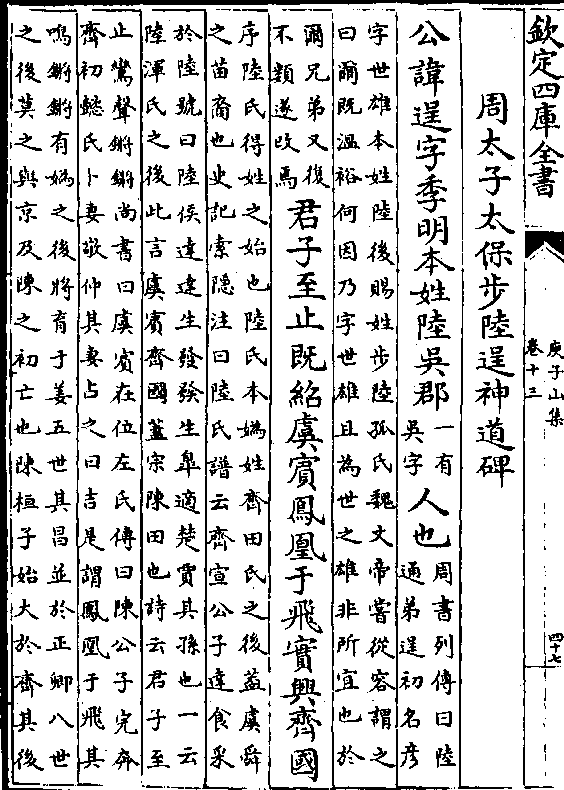 欽定四庫全書
庾子山集
卷十三
四十七
周太子太保步陸逞神道碑
公諱逞字季明本姓陸吳郡一有
吳字人也周書列傳曰陸
逞弟逞初名彦
字世雄本姓陸後賜姓步陸孤氏魏文帝嘗從容謂之
曰爾既溫裕何因乃字世雄且為世之雄非所宜也於
爾兄弟又復
不類遂改焉君子至止既紹虞賓鳳凰于飛實興齊國
序陸氏得姓之始也陸氏本媯姓齊田氏之後益虞舜
之苗裔也史記索隱注曰陸氏譜云齊宣公子達食采
於陸號曰陸侯達達生發發生臯適楚賈其孫也一云
陸渾氏之後此言虞賓齊國蓋宗陳田也詩云君子至
止鸞聲鏘鏘尚書曰虞賓在位左氏傳曰陳公子完奔
齊初懿氏卜妻敬仲其妻占之曰吉是謂鳳凰于飛其
鳴鏘鏘有媯之後將育于姜五世其昌並於正卿八世
之後莫之與京及陳之初亡也陳桓子始大於齊其後